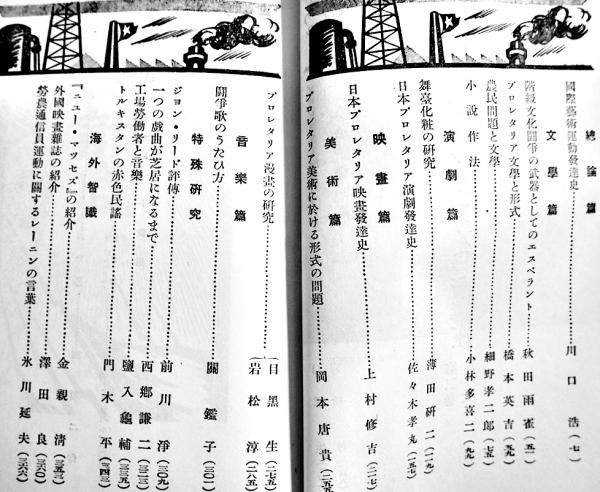 總論篇
國際藝術運動發達史 川口浩(七)
文學篇
階級文化鬪爭の武器としてのエスペラント 秋田雨雀(五一)
プロレタリア文學と形式 橋本英吉(五九)
農民問題と文學 細野孝二郎
小説作法 小林多喜二
演劇篇
舞臺化粧の研究 薄田研二
日本プロレタリア演劇發達史 佐々木孝丸
映畫篇
日本プロレタリア映畫發達史 上村修吉
美術篇
プロレタリア美術に於ける形式の問題 岡本唐貴
プロレタリア漫畫の研究 目黑生 岩松淳
音樂篇
鬪爭歌のうたひ方 關鑑子(三〇一)
特殊研究
ジョン・リード評傳 前川淨(三〇九)
一つの戯曲が芝居になるまで 西鄕謙二
工場勞働者と音樂 鹽入龜輔
トルキスタンの赤色民謠 門木平
海外智識
『ニュー・マツセズ』の紹介 金親淸
外國映畫雜誌の紹介 澤田良
勞農通信員運動に關するレーニンの言葉 氷川延夫